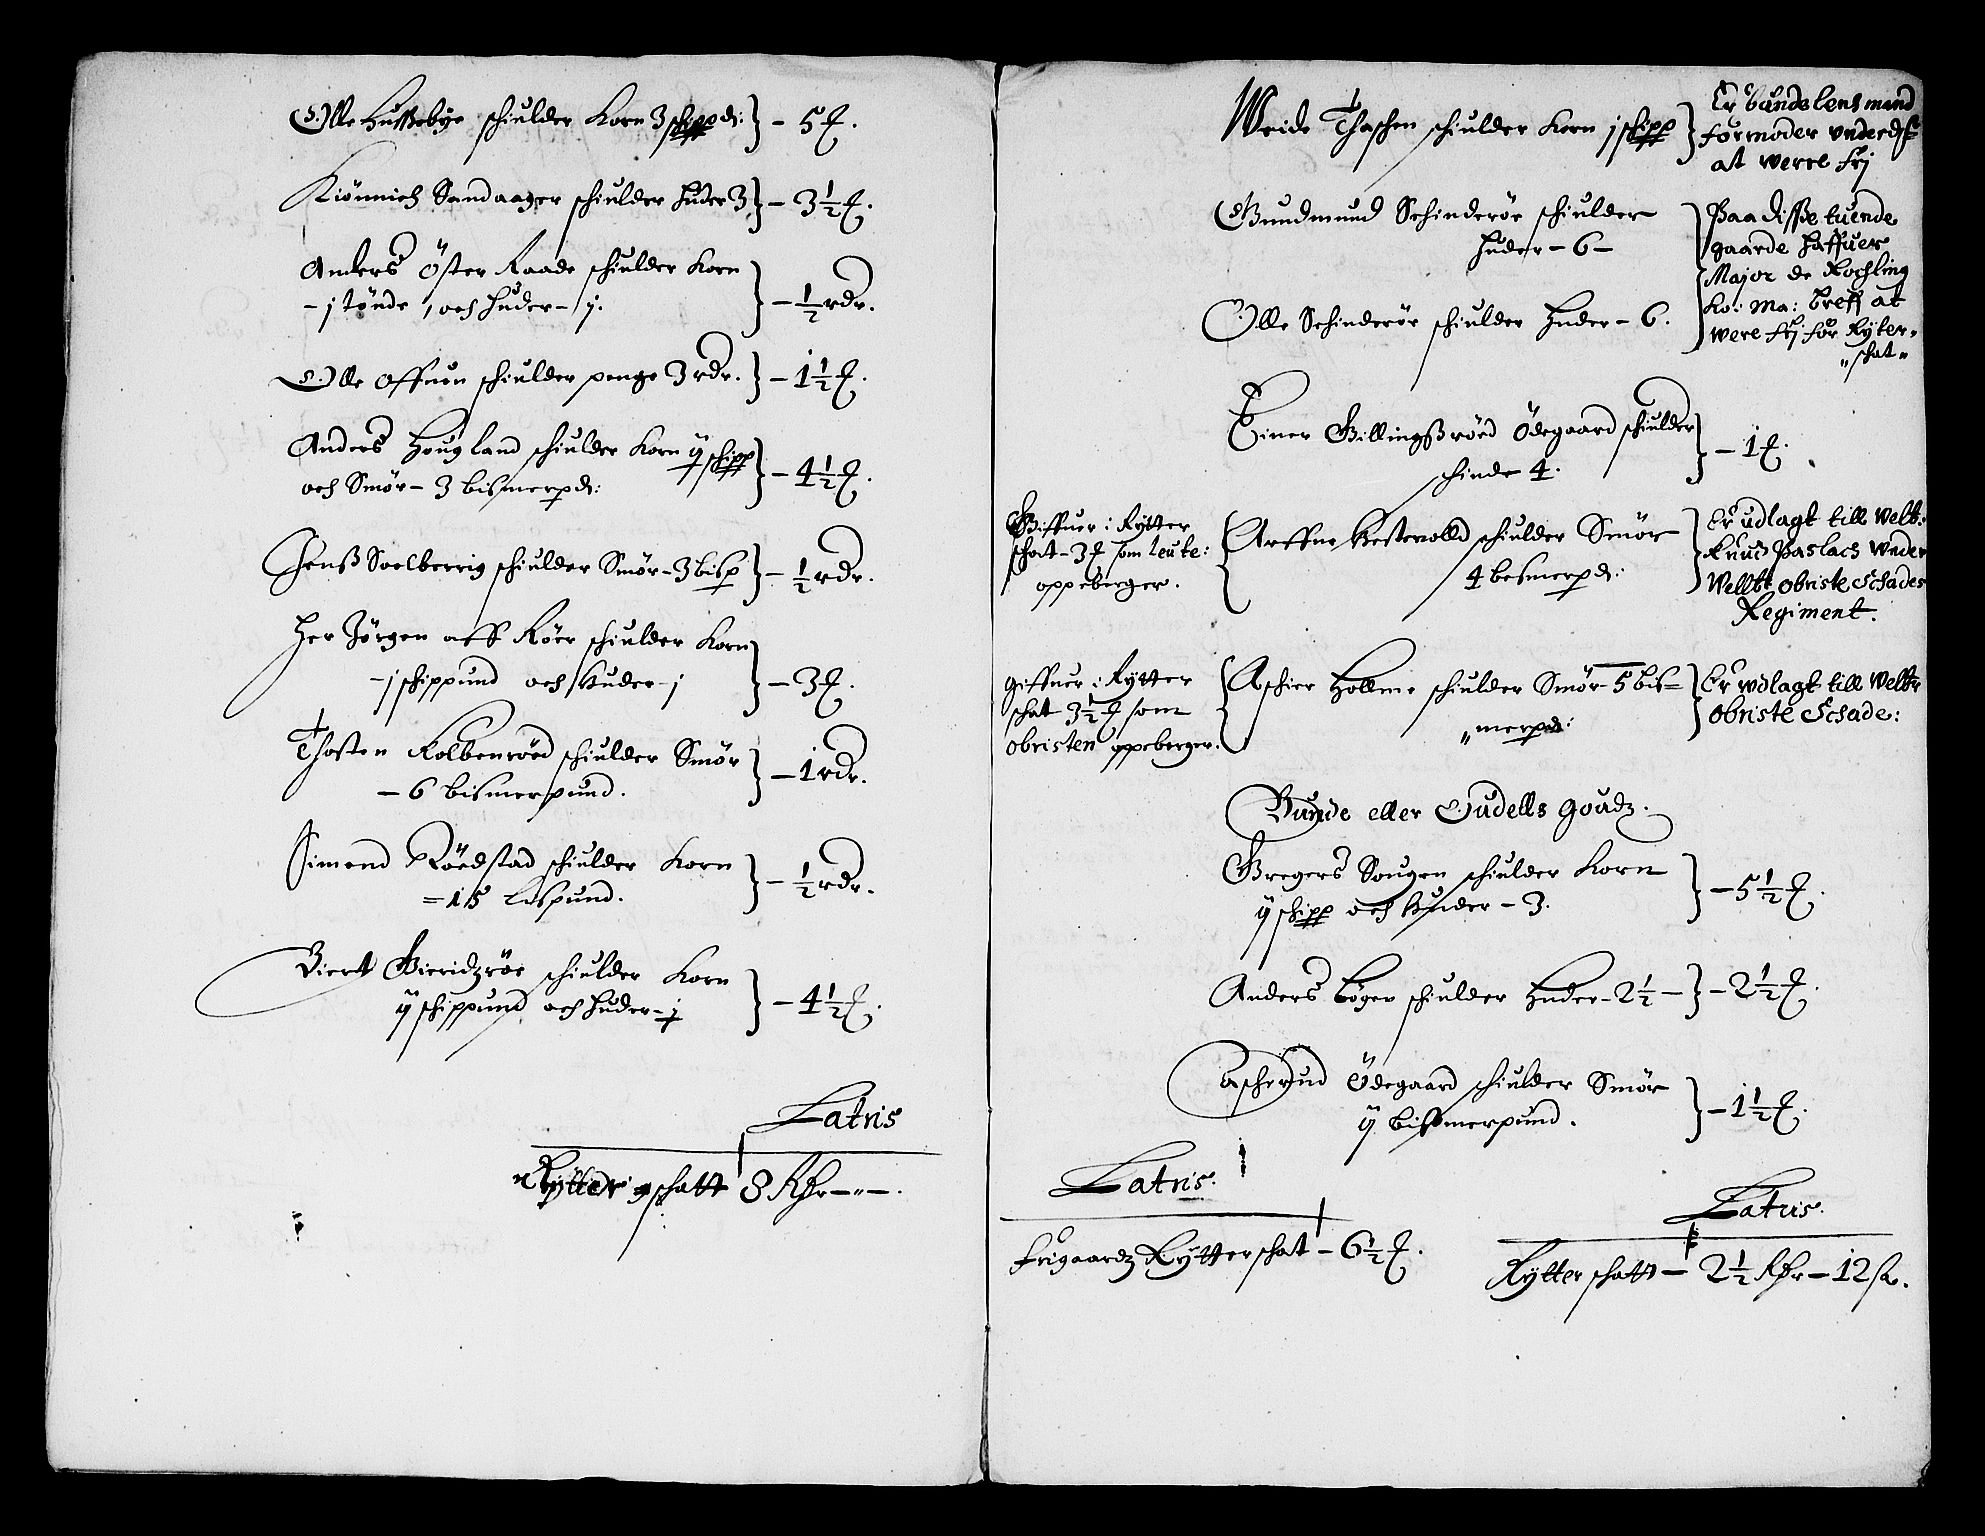 Olle Hussebye schiulder Korn 3 schippd: } - 5 £.
Kiönnich Sandaager schiulder huder 3 } - 3½ £.
Anders Öster Raade schiulder Korn
- j tönde, och huder - j. } - ½ rdr.
Olle Offuen schiulder penge 3 rdr. } - 1½ £.
Anders Hougland schiulder Korn ij schipp
och Smör - 3 bismerpd: } - 4½ £.
Jenß Soelberrig schiulder Smör - 3 bisp } - ½ rdr.
Her Jörgen aff Röer schiulder Korn
- j schippund och huder - j } - 3 £.
Thosten Kolbenröed schiulder Smör
- 6 bismerpund. } - 1 rdr.
Simend Röedstad schiulder Korn
= 15 Lispund. } - ½ rdr.
Biert Gieridzröe schiulder Korn
ij schippund och huder - j } - 4½ £.
Latris
Rytter schatt 8 Rdr - " - .
Weide Thaschen schiulder Korn j schipp }
Er bundelensmand
formoder underd
at werre frj
Gundmund Schinderör schiulder
huder - 6 -
Olle Schinderör schiulder Huder - 6.
Paa disse tuende
gaarde haffuer
Major de Rochling
Ko: Ma: breff at
were frj for Ryter-
"schat"
Einer Gillingßröed Ödegaard schiulder
schinde 4. } - 1 £.
Giffuer i Rytter
schat - 3 £ som leute:
oppeberger.
Arffue Kestevolld schiulder Smör
4 besmerpd:
Er udlagt till Welb:
Knud Paslach under
Wellbt obriste Schades
Regiment.
giffuer i Rytter
schat 3½ £ som
obristen oppeberger.
Aschier Hollme schiulder Smör - 5 bis=
"merpd:
Er udlagt till Welbr
obriste Schade:
Bunde eller Oudells goudz.
Gregers Sougen schiulder Korn
ij schipp och huder - 3. } - 5½ £.
Anders Böger schiulder Huder - 2½ - } - 2½ £.
Ascherud Ödegaard schiulder Smör
ij bismerpund. } - 1½ £.
Latris.
frigaardz Rytter schat - 6½ £.
Latus.
Rytter schatt - 2½ Rdr - 12 ß.